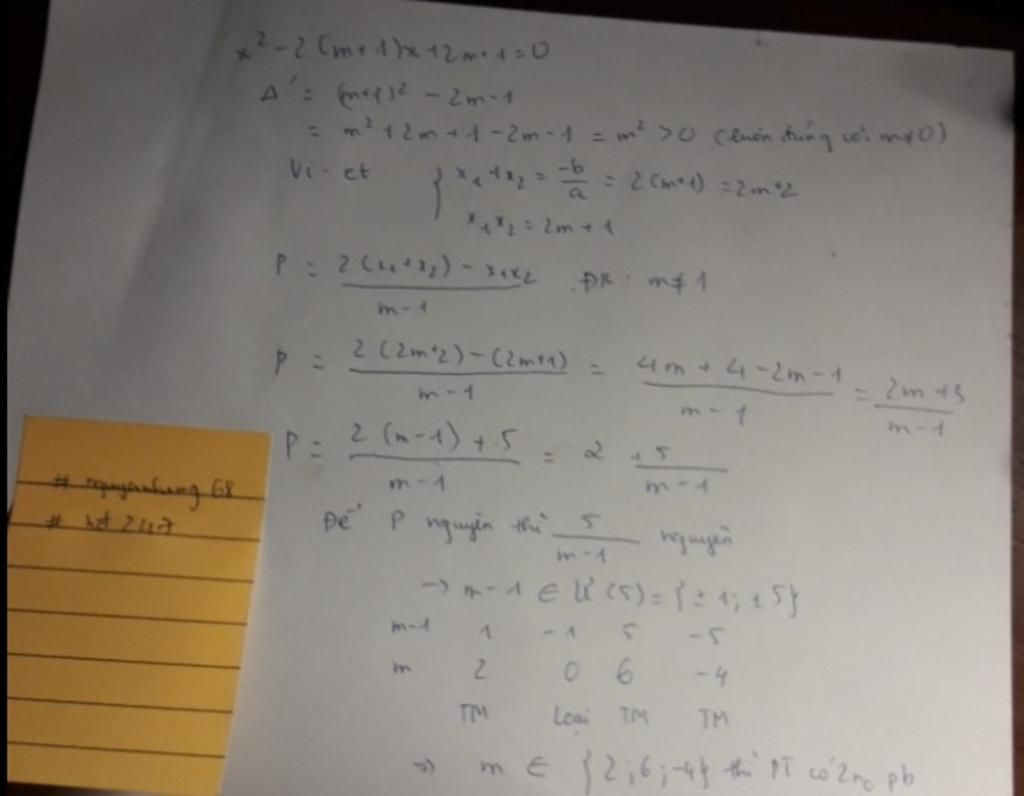 x² - 2(m+1)x + 2m+1 = 0
Δ' = (m+1)² - 2m-1
= m² + 2m + 1 - 2m - 1 = m² > 0 (luôn đúng với m≠0)
Vi-et { x₁+x₂ = -b/a = 2(m+1) = 2m+2
x₁x₂ = 2m+1
P = 2(x₁+x₂) - x₁x₂ / m-1 ĐK: m≠1
P = 2(2m+2)-(2m+1) / m-1 = 4m+4-2m-1 / m-1 = 2m+3 / m-1
P = 2(m-1)+5 / m-1 = 2 + 5 / m-1
Để P nguyên thì 5 / m-1 nguyên
→ m-1 ∈ Ư(5) = {±1; ±5}
m-1 1 -1 5 -5
m 2 0 6 -4
TM Loại TM TM
=> m ∈ {2;6;-4} thì PT có 2n₀ pb
# 68
# hđt 247